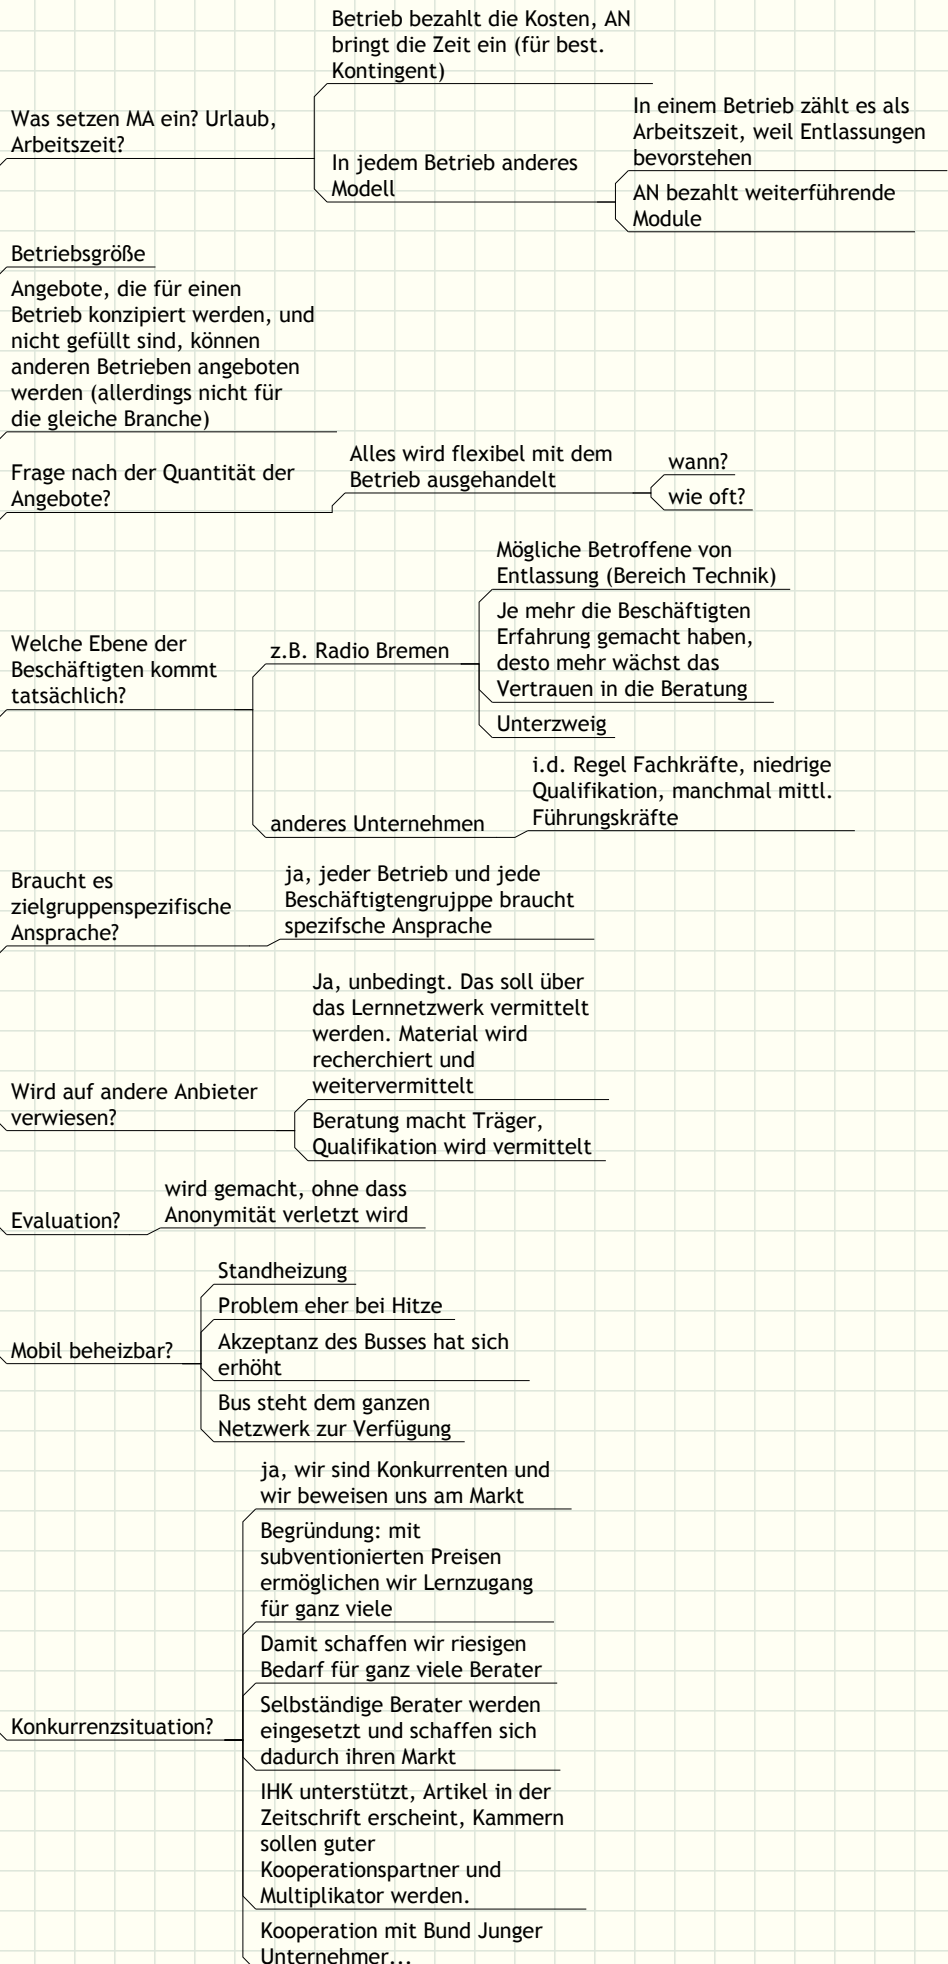 Betrieb bezahlt die Kosten, AN
bringt die Zeit ein (für best.
Kontingent)
Was setzen MA ein? Urlaub,
Arbeitszeit?
In jedem Betrieb anderes
Modell
In einem Betrieb zählt es als
Arbeitszeit, weil Entlassungen
bevorstehen
AN bezahlt weiterführende
Module
Betriebsgröße
Angebote, die für einen
Betrieb konzipiert werden, und
nicht gefüllt sind, können
anderen Betrieben angeboten
werden (allerdings nicht für
die gleiche Branche)
Frage nach der Quantität der
Angebote?
Alles wird flexibel mit dem
Betrieb ausgehandelt
wann?
wie oft?
Welche Ebene der
Beschäftigten kommt
tatsächlich?
z.B. Radio Bremen
Mögliche Betroffene von
Entlassung (Bereich Technik)
Je mehr die Beschäftigten
Erfahrung gemacht haben,
desto mehr wächst das
Vertrauen in die Beratung
Unterzweig
anderes Unternehmen
i.d. Regel Fachkräfte, niedrige
Qualifikation, manchmal mittl.
Führungskräfte
Braucht es
zielgruppenspezifische
Ansprache?
ja, jeder Betrieb und jede
Beschäftigtengrujppe braucht
spezifsche Ansprache
Wird auf andere Anbieter
verwiesen?
Ja, unbedingt. Das soll über
das Lernnetzwerk vermittelt
werden. Material wird
recherchiert und
weitervermittelt
Beratung macht Träger,
Qualifikation wird vermittelt
Evaluation?
wird gemacht, ohne dass
Anonymität verletzt wird
Mobil beheizbar?
Standheizung
Problem eher bei Hitze
Akzeptanz des Busses hat sich
erhöht
Bus steht dem ganzen
Netzwerk zur Verfügung
Konkurrenzsituation?
ja, wir sind Konkurrenten und
wir beweisen uns am Markt
Begründung: mit
subventionierten Preisen
ermöglichen wir Lernzugang
für ganz viele
Damit schaffen wir riesigen
Bedarf für ganz viele Berater
Selbständige Berater werden
eingesetzt und schaffen sich
dadurch ihren Markt
IHK unterstützt, Artikel in der
Zeitschrift erscheint, Kammern
sollen guter
Kooperationspartner und
Multiplikator werden.
Kooperation mit Bund Junger
Unternehmer...